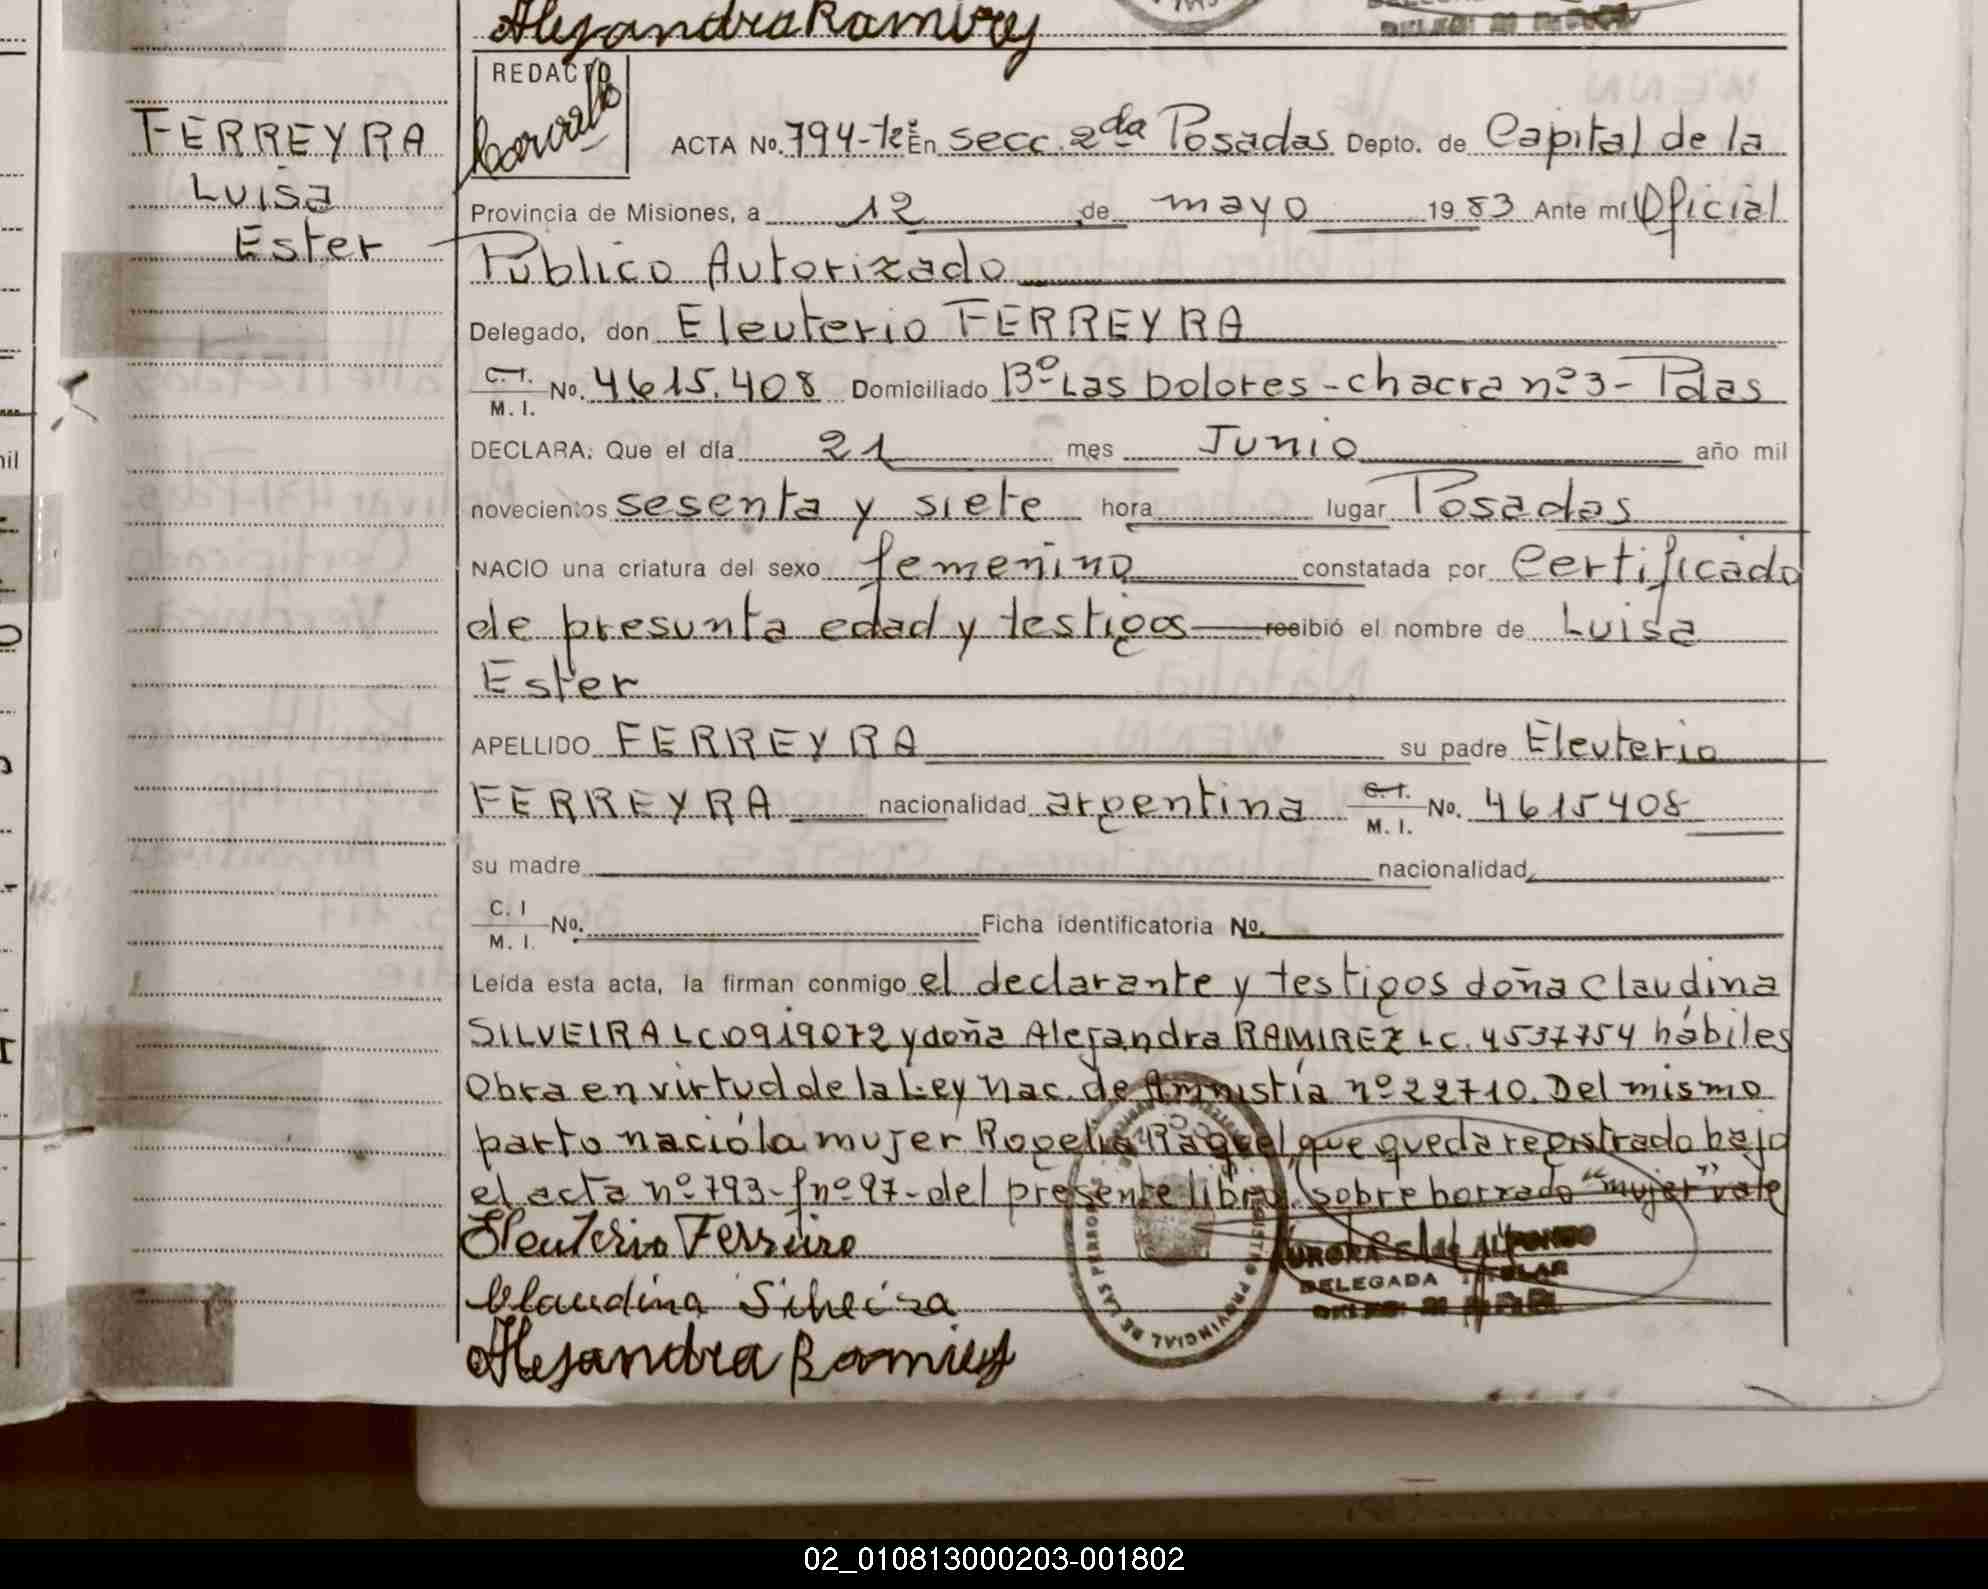 Alejandra Ramirez
REDACTO
FERREYRA
Luisa
Ester
ACTA No. 794-tº En secc. 2da Posadas Depto. de Capital de la
Provincia de Misiones, a 12 de mayo 1983 Ante mí Oficial
Publico Autorizado
Delegado, don Eleuterio FERREYRA
C.I. M.I. No. 4615.408 Domiciliado Bº Las Dolores - chacra nº 3 - Pdas
DECLARA: Que el día 21 mes Junio año mil
novecientos sesenta y siete hora lugar Posadas
NACIO una criatura del sexo femenino constatada por Certificado
de presunta edad y testigos recibió el nombre de Luisa
Ester
APELLIDO FERREYRA su padre Eleuterio
FERREYRA nacionalidad argentina C.I. M.I. No. 4615408
su madre nacionalidad
C.I M.I. No. Ficha identificatoria No.
Leída esta acta, la firman conmigo el declarante y testigos doña Claudina
SILVEIRA LC 0919072 y doña Alejandra RAMIREZ LC. 4537754 hábiles
Obra en virtud de la Ley Nac. de Amnistía nº 22710. Del mismo
parto nació la mujer Rogelia Raquel, que queda registrado bajo
el acta nº 793 - fnº 97 - del presente libro, sobre borrado "mujer" vale
Eleuterio Ferreira
Claudina Silveira
DELEGADA TITULAR
PROVINCIAL DE LAS PERSONAS
Alejandra Ramirez
02_010813000203-001802